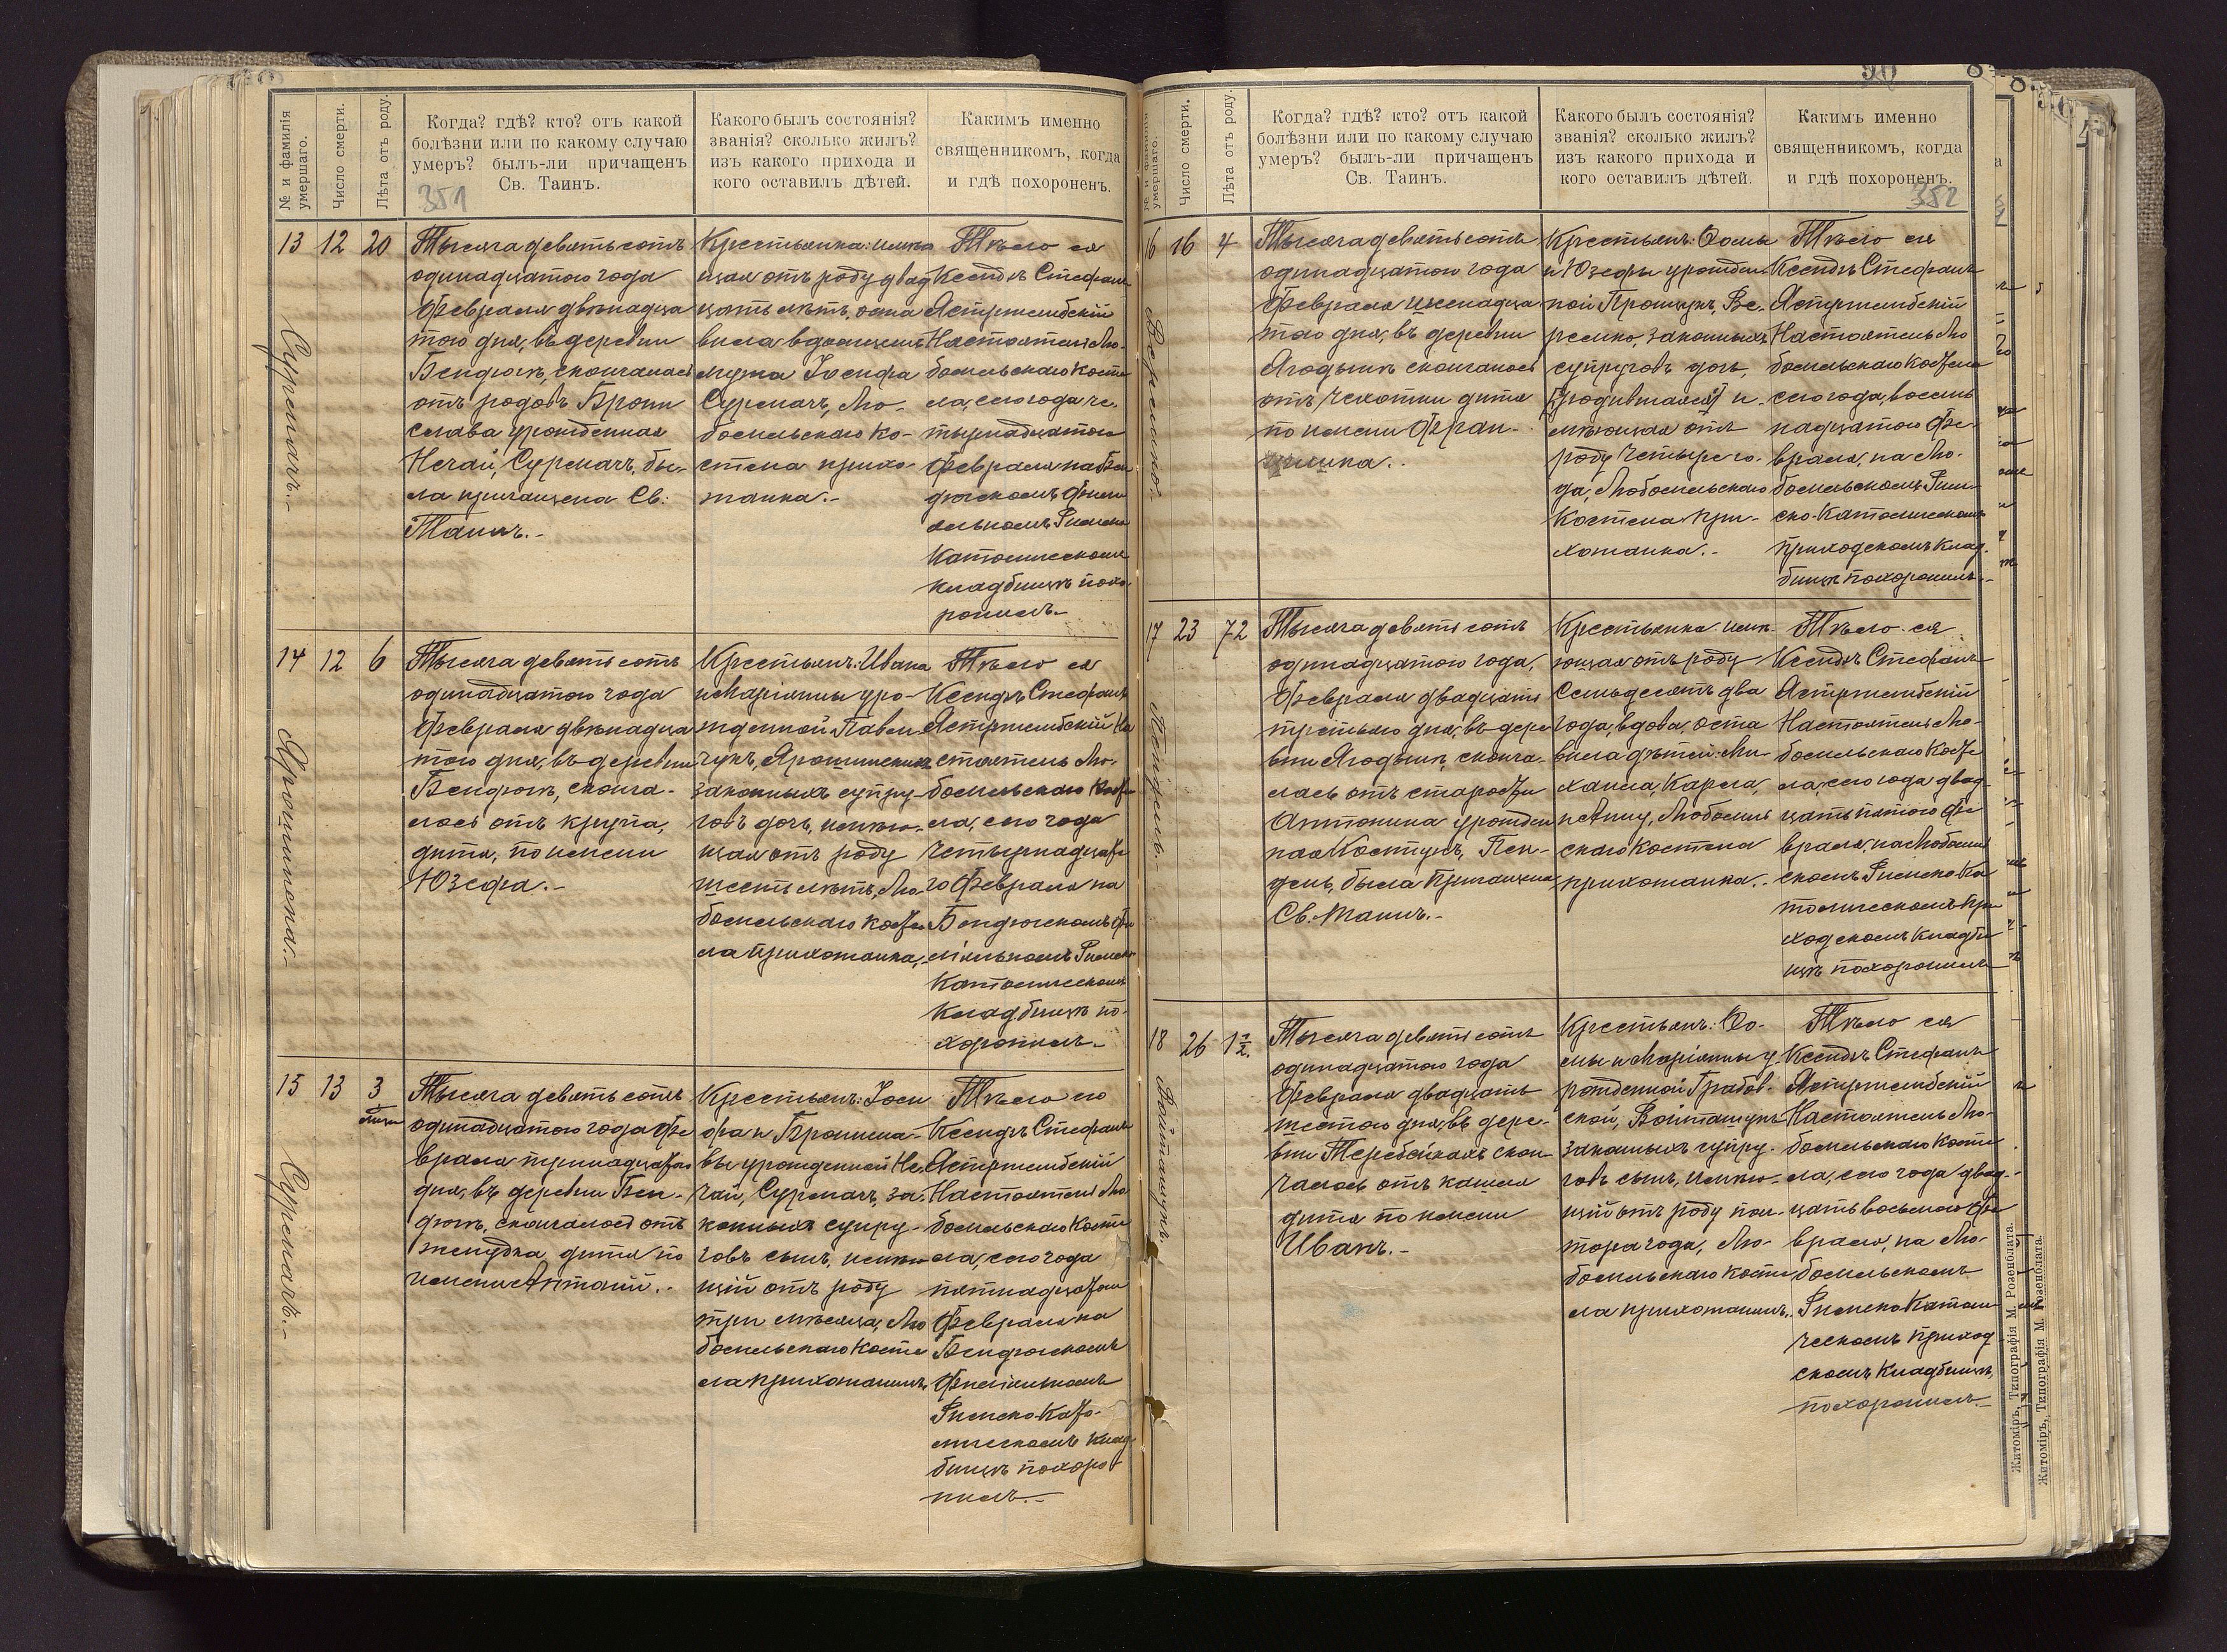 № и фамилія умершаго.
Число смерти.
Лѣта отъ роду.
Когда? гдѣ? кто? отъ какой
болѣзни или по какому случаю
умеръ? былъ-ли причащенъ
Св. Таинъ.
351
Какого былъ состоянія?
званія? сколько жилъ?
изъ какого прихода и
кого оставилъ дѣтей.
Какимъ именно
священникомъ, когда
и гдѣ похороненъ.
13 12 20
Сурмачъ.-
Тысяча девятьсотъ
одинадцатого года
Февраля двѣнадца
того дня, въ деревни
Бендюгѣ, скончалась
отъ родовъ Брони
слава урождённая
Нечай, Сурмачъ, бы-
ла причащена Св:
Таинъ.-
Крестьянка: имѣю
щая отъ роду двад
цать лѣтъ, оста
вила вдовцемъ
мужа Іосифа
Сурмачъ, Лю-
бомльскаго ко-
стела прихо-
жанка.-
Тѣло ея
Ксендзъ Стефанъ
Ястржембскій
Настоятель Лю-
бомльскаго Косте
ла, сего года че-
тырнадцатого
Февраля на Бен
дюгскомъ Фили
альномъ Римско
Католическомъ
кладбищѣ похо-
ронилъ.-
14 12 6
Ярошинска.-
Тысяча девятьсотъ
одинадцатого года
Февраля двѣнадца
того дня, въ деревни
Бендюгѣ, сконча-
лось отъ крупа,
дитя, по имени
Юзефа.-
Крестьянъ: Ивана
и Маріянны уро-
жденной Павли-
чукъ, Ярошинскихъ
законныхъ супру-
говъ дочь, имѣю-
щая отъ роду
шесть лѣтъ, Лю-
бомльскаго косте
ла прихожанка.-
Тѣло ея
Ксендзъ Стефанъ
Ястржембскій На
стоятель Лю-
бомльскаго Косте
ла, сего года
четырнадцато
го Февраля на
Бендюгскомъ Фи
ліяльномъ Римско
Католическомъ
Кладбищѣ по-
хоронилъ.-
15 13 3
Сурмачъ.-
Тысяча девятьсотъ
одинадцатого года Фе
враля тринадцатого
дня, въ деревни Бен-
дюгѣ, скончалось отъ
желудка дитя по
имени Антоній.-
Крестьянъ: Іоси
фа и Бронисла-
вы урожденной Не-
чай, Сурмачъ, за-
конныхъ супру-
говъ сынъ, имѣю
щій отъ роду
три мѣсяца, Лю
бомльскаго Косте
ла прихожанинъ.
Тѣло его
Ксендзъ Стефанъ
Ястржембскій
Настоятель Лю-
бомльскаго Косте
ла, сего года
пятнадцатого
Февраля на
Бендюгскомъ
Филіяльномъ
Римско Като-
лическомъ Клад
бищѣ похоро
нилъ.-
№ и фамилія умершаго.
Число смерти.
Лѣта отъ роду.
Когда? гдѣ? кто? отъ какой
болѣзни или по какому случаю
умеръ? былъ-ли причащенъ
Св. Таинъ.
Какого былъ состоянія?
званія? сколько жилъ?
изъ какого прихода и
кого оставилъ дѣтей.
Какимъ именно
священникомъ, когда
и гдѣ похороненъ.
352
16 16 4
Тысяча девятьсотъ
одинадцатого года
Февраля шеснадца
того дня, въ деревни
Ягодынѣ скончалось
отъ чехотки дитя
по имени Фран-
цишка.
Крестьянъ: Ѳомы
и Юзефы урожден-
ной Прошукъ, Ве-
ремко, законныхъ
супруговъ дочь,
и-
мѣющая отъ
роду четыре го-
да, Любомльскаго
Костела при-
хожанка.-
Тѣло ея
Ксендзъ Стефанъ
Ястржембскій
Настоятель Лю
бомльскаго Костела
сего года, восем
надцатого Фе-
враля, на Лю-
бомльскомъ Рим-
ско-Католическомъ
приходскомъ клад-
бищѣ похоронилъ.-
17 23 72
Тысяча девятьсотъ
одинадцатого года,
Февраля двадцать
третьяго дня, въ дере
вни Ягодынѣ, сконча-
лась отъ старости
Антонина урожден
ная Костукъ, Пен-
дель, была причащена
Св. Таинъ.-
Крестьянка имѣ-
ющая отъ роду
семьдесятъ два
года, вдова, оста
вила дѣтей: Ми-
хаила, Карла,
и Анну, Любомль
скаго Костела
прихожанка.-
Тѣло ея
Ксендзъ Стефанъ
Ястржембскій
Настоятель Лю-
бомльскаго Косте
ла, сего года двад
цать пятого Фе
враля, на Любомль
скомъ Римско Ка
толическомъ при
ходскомъ кладби
щѣ похоронилъ
18 26 1½
Войташукъ.
Тысяча девятьсотъ
одинадцатого года
Февраля двадцать
шестого дня, въ дере-
вни Теребейкахъ скон
чалось отъ кашля
дитя по имени
Иванъ.-
Крестьянъ: Ѳо-
мы и Маріянны у
рожденной Грабов-
ской, Войташукъ
законныхъ супру-
говъ сынъ, имѣю-
щій отъ роду пол-
тора года, Лю-
бомльскаго Косте
ла прихожанинъ.
Тѣло ея
Ксендзъ Стефанъ
Ястржембскій
Настоятель Лю-
бомльскаго Косте
ла, сего года двад-
цать восьмого Фе
враля, на Лю-
бомльскомъ
Римско Католи
ческомъ приход
скомъ Кладбищѣ,
похоронилъ.-
Житоміръ, Типографія М. Розенблата.
Житоміръ, Типографія М. Розенблата.